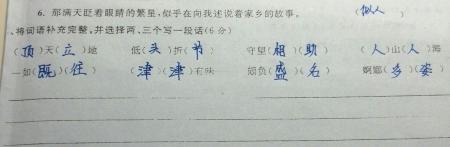 6. 那满天眨着眼睛的繁星,似乎在向我述说着家乡的故事。 (拟人)
、将词语补充完整,并选择两、三个写一段话(6分)
(顶)天(立)地 低(头)折(节) 守望(相)(助) (人)山(人)海
一如(既)(往) (津)(津)有味 如负(盛)(名) 婀娜(多)(姿)